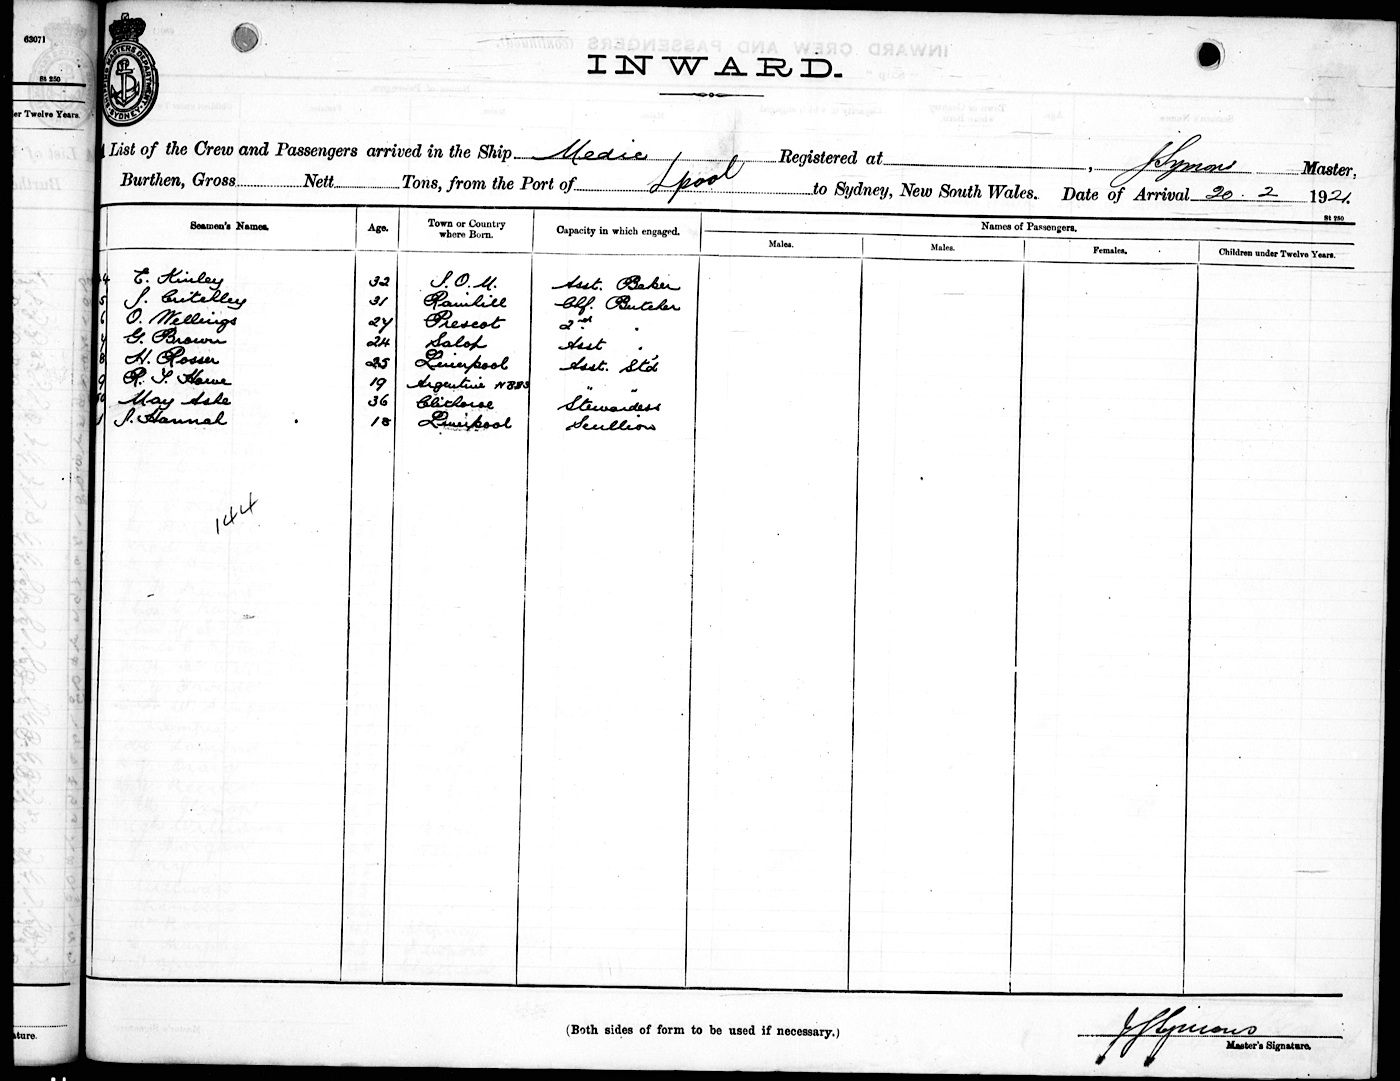 63071
INWARD.
St 250
er Twelve Years.
List of the Crew and Passengers arrived in the Ship Medic Registered at , J Symons Master,
Burthen, Gross Nett Tons, from the Port of Lpool to Sydney, New South Wales. Date of Arrival 20 . 2 1921.
St 250
Seamen's Names. Age. Town or Country where Born. Capacity in which engaged. Names of Passengers.
Males. Males. Females. Children under Twelve Years.
4 E. Kinley 32 I.O.M. Asst. Baker
5 J. Critchley 31 Rainhill Chf. Butcher
6 O. Wellings 27 Prescot 2nd "
7 G. Brown 24 Salop Asst "
8 H. Rosser 25 Liverpool Asst. Std
9 R. Howe 19 Argentine " "
50 May Ashe 36 Clitheroe Stewardess
1 J. Hannah 18 Liverpool Scullion
144
(Both sides of form to be used if necessary.)
J Symons
Master's Signature.
ature.